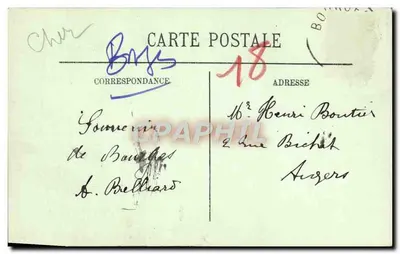 Cher
Bourges
CARTE POSTALE
18
CORRESPONDANCE
ADRESSE
Souvenir
de Bourges
A. Brelliard
Mr Henri Boutier
2 Rue Bichat
Angers
CPAPHIL.com